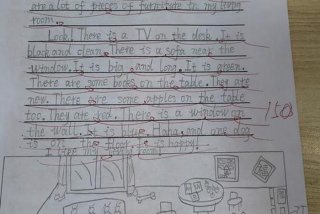 are a lot of pieces of furniture in my living
room.
Look! There is a TV on the desk. It is
black and clean. There is a sofa near the
window. It is big and long. It is green.
There are some books on the table. They are
new. There are some apples on the table
too. They are red. There is a window on
the wall. It is blue. Haha, and one dog
is on the floor. It is happy!
I like my living room!
150